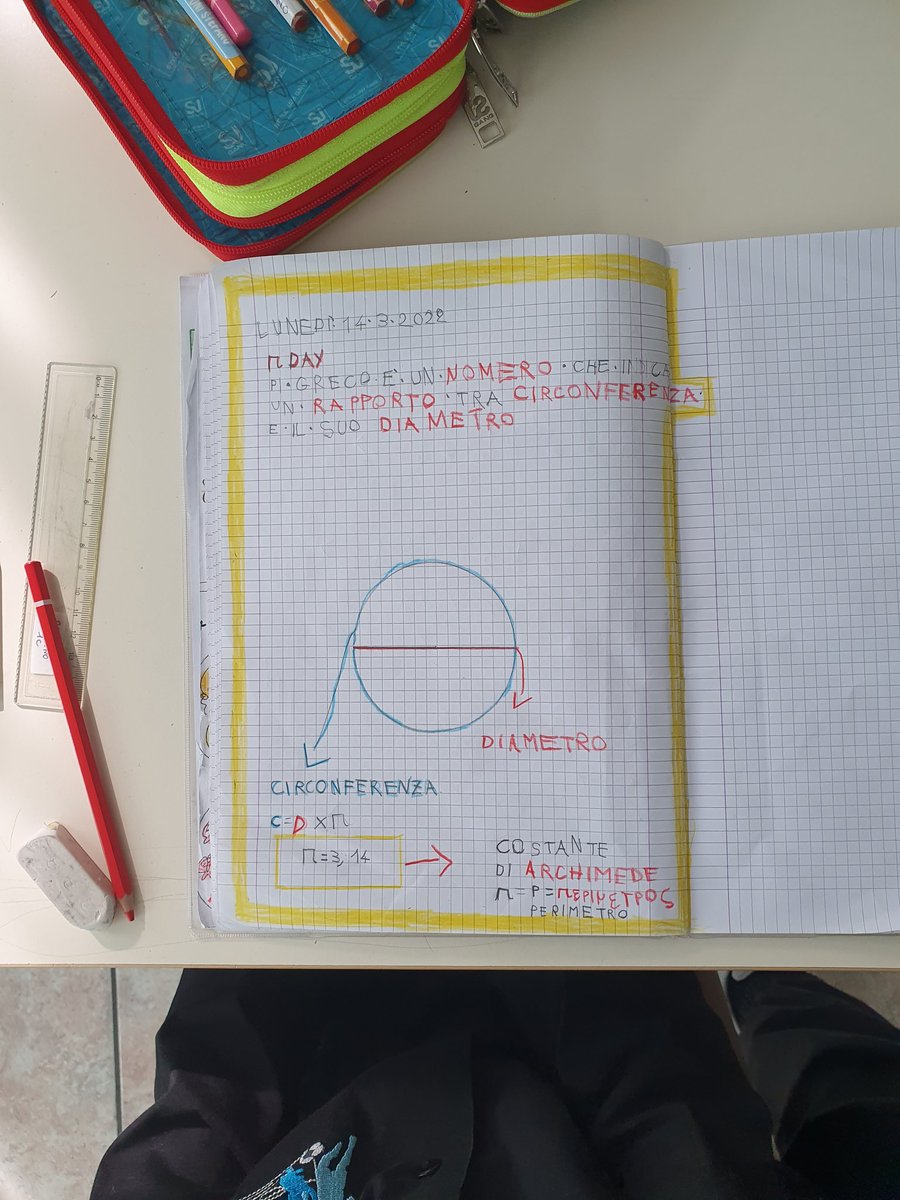 LUNEDÌ: 14·3·2022
π DAY
PI·GRECO·E'·UN·NOMERO·CHE·INDICA
UN·RAPPORTO·TRA CIRCONFERENZA·
E·IL·SUO DIAMETRO
DIAMETRO
CIRCONFERENZA
C=D×π
π=3,14
COSTANTE
DI ARCHIMEDE
π=P=ΠΕΡΙΜΕΤΡΟS
PERIMETRO
SJ
GANG